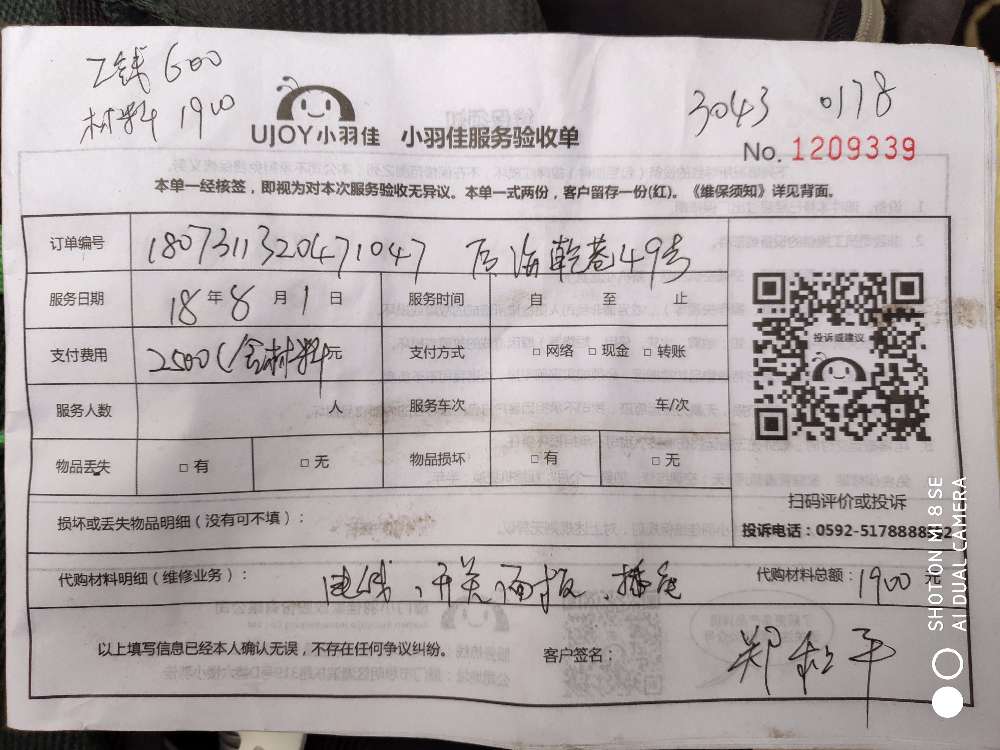 工钱 600
材料 1900
3043 0178
UJOY小羽佳 小羽佳服务验收单
No. 1209339
本单一经核签，即视为对本次服务验收无异议。本单一式两份，客户留存一份(红)。《维保须知》详见背面。
订单编号 1807311320471047 后海乾巷49号
服务日期 18 年 8 月 1 日 服务时间 自 至 止
支付费用 2500(含材料 元 支付方式 □ 网络 □ 现金 □ 转账
服务人数 人 服务车次 车/次
物品丢失 □ 有 □ 无 物品损坏 □ 有 □ 无
投诉或建议
扫码评价或投诉
投诉电话：0592-5178888
损坏或丢失物品明细（没有可不填）：
代购材料明细（维修业务）： 电线、开关面板、插座 代购材料总额：1900 元
以上填写信息已经本人确认无误，不存在任何争议纠纷。 客户签名： 郑 平
SHOT ON MI 8 SE
AI DUAL CAMERA